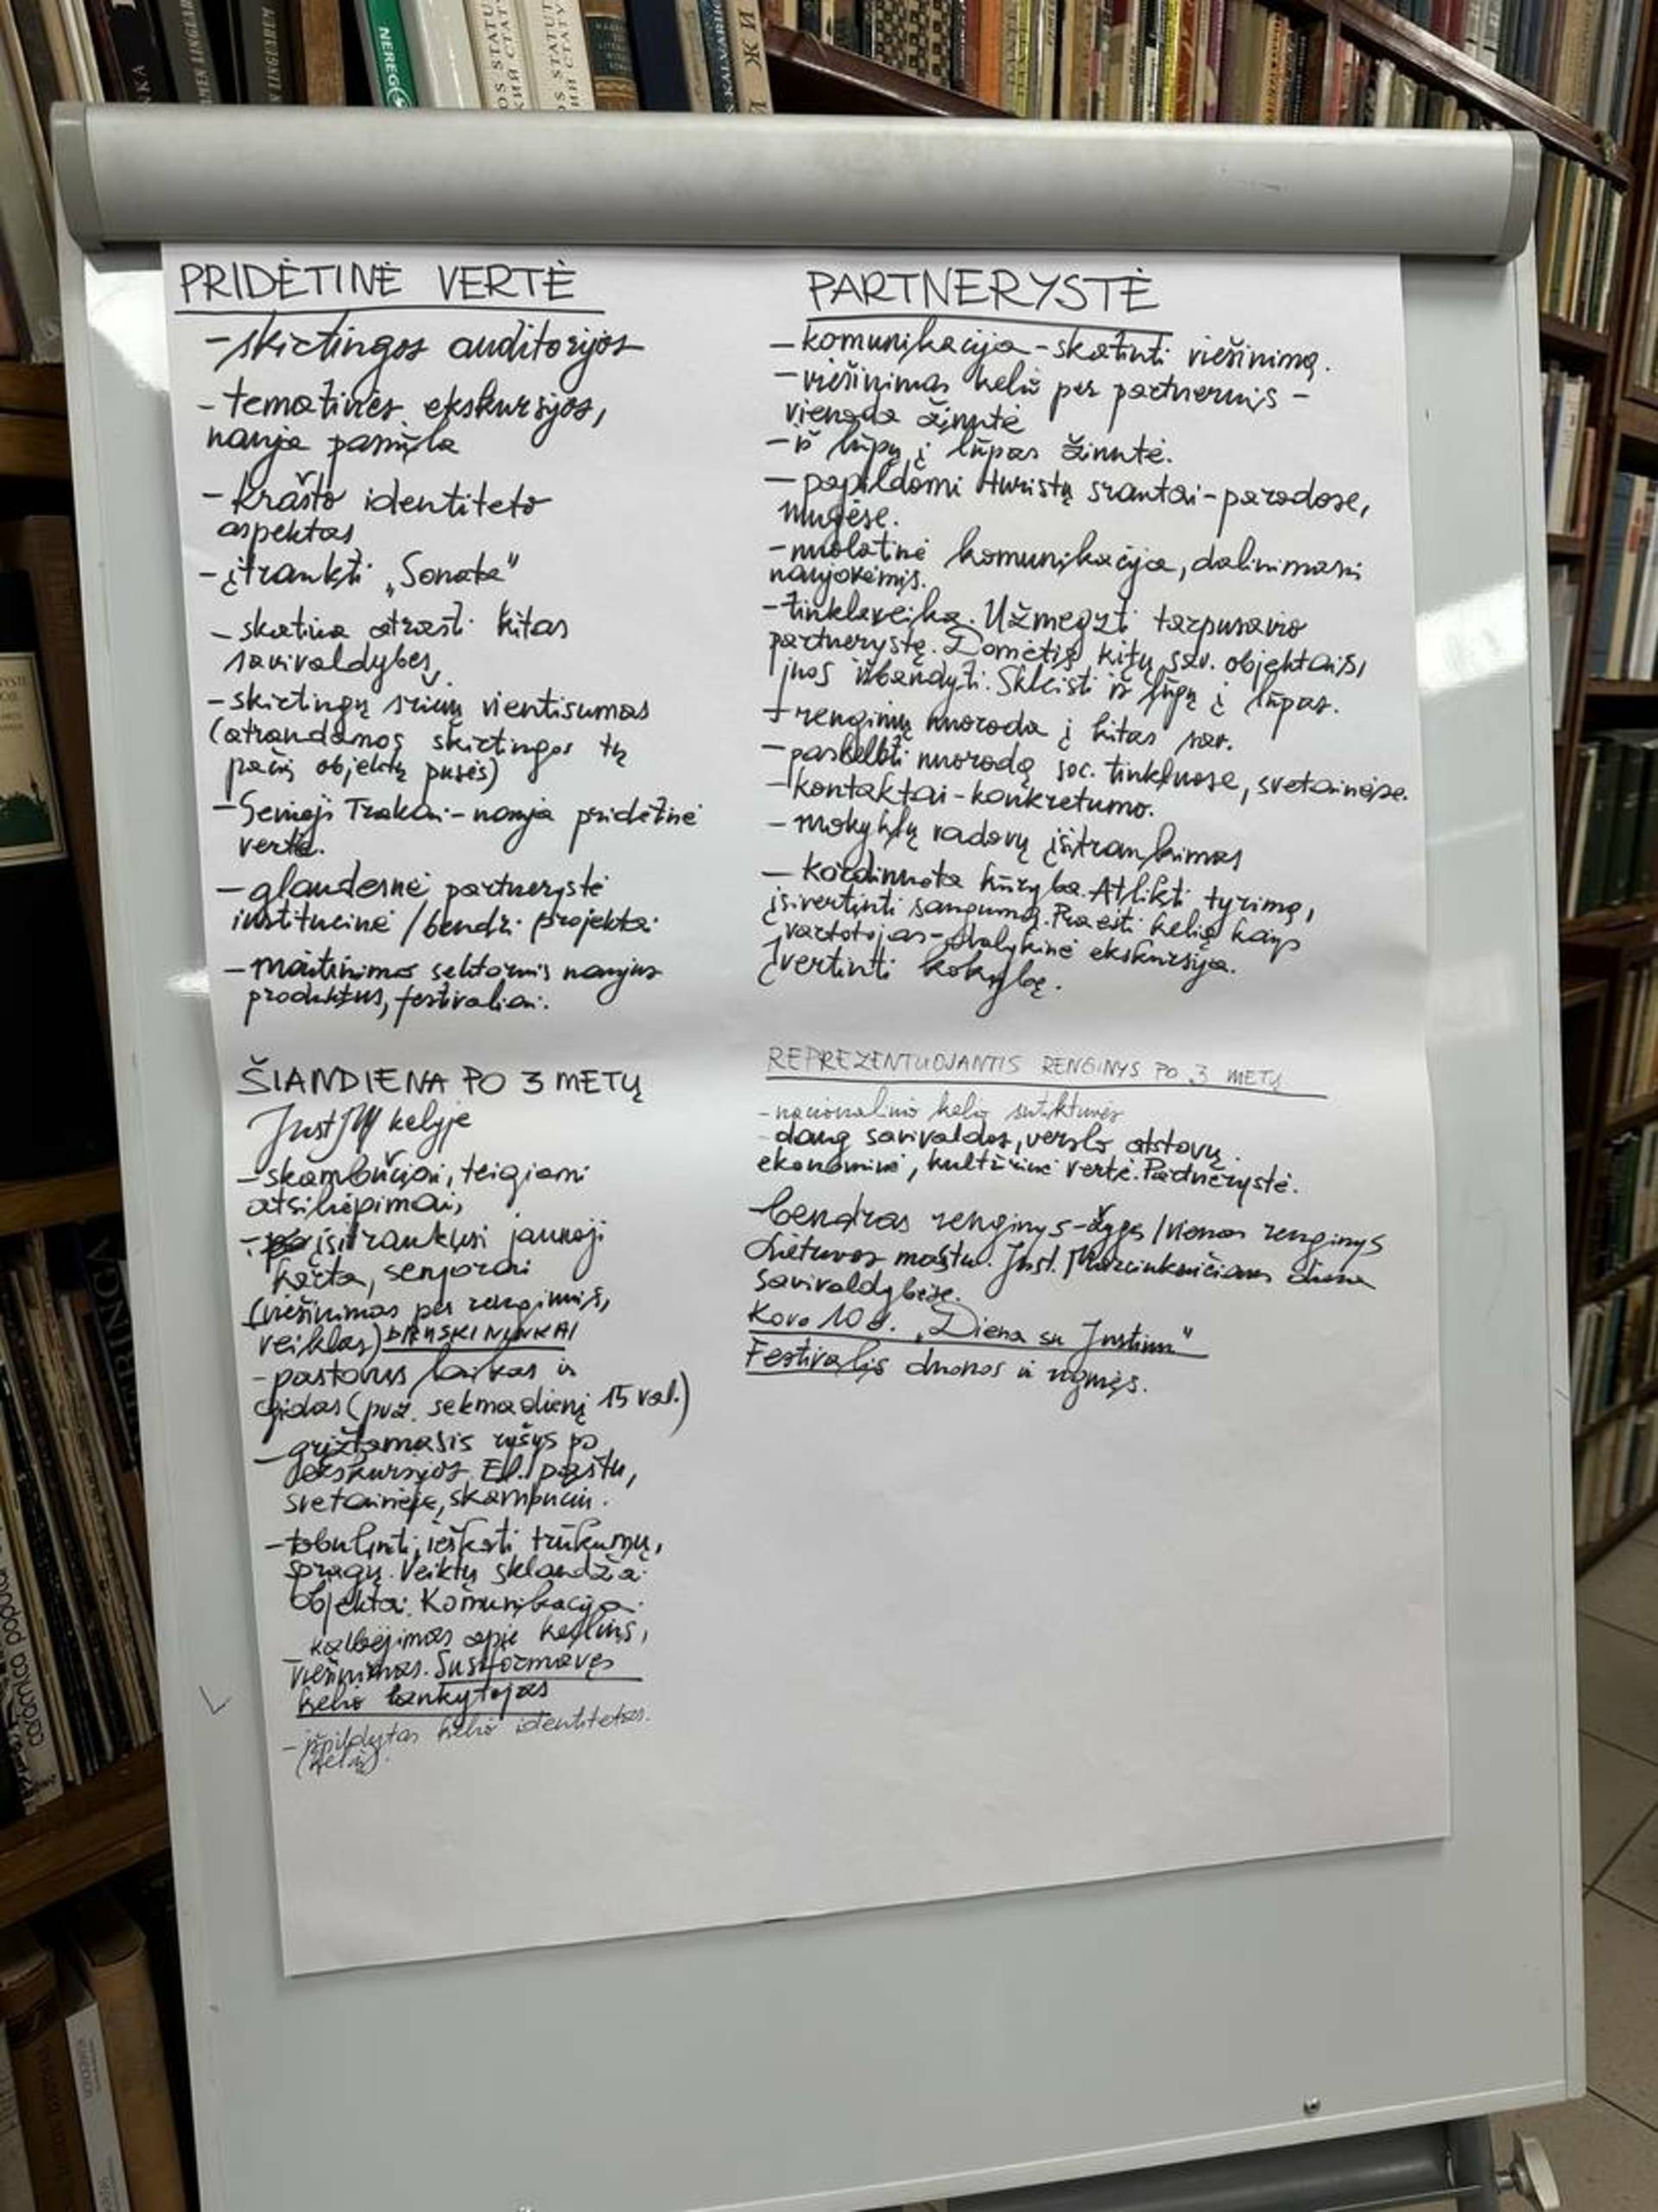 NEREG
PRIDĖTINĖ VERTĖ
- skirtingos auditorijos
- tematinės ekskursijos,
nauja pasiūla
- krašto identiteto
aspektas
- įtraukti „Sonata"
- skatina atrasti kitas
savivaldybes
- skirtingų sričių vientisumas
(atrandamos skirtingos tų
pačių objektų pusės)
- Senieji Trakai - nauja pridėtinė
vertė.
- glaudesnė partnerystė
institucinė / bendri projektai
- maitinimo sektoriuis naujus
produktus, festivaliai.
PARTNERYSTĖ
- komunikacija - skatinti viešinimą.
- viešinimas kelio per partnerius -
vienoda žinutė
- iš lūpų į lūpas žinutė.
- papildomi turistų srautai - parodose,
mugėse.
- nuolatinė komunikacija, dalinimasi
naujovėmis.
- tinklaveika. Užmegzti tarpusavio
partnerystę. Domėtis kitų sav. objektais,
juos išbandyti. Skleisti iš lūpų į lūpas.
- renginių nuoroda į kitas sav.
- paskelbti nuorodą soc. tinkluose, svetainėse.
- kontaktai - konkretumo.
- mokyklų vadovų įsitraukimas
- Kordinuota kūryba. Atlikti tyrimą,
įsivertinti saugumą. Praeiti kelią kaip
vartotojas - dalykinė ekskursija.
Įvertinti kokybę.
ŠIANDIENA PO 3 METŲ
Just JM kelyje
- skambučiai, teigiami
atsiliepimai,
- įsitraukusi jaunoji
karta, senjorai
(viešinimas per renginius,
veiklas) DRUSKININKAI
- pastovus laikas ir
gidas (pvz. sekmadienį 15 val.)
- grįžtamasis ryšys po
ekskursijos El. paštu,
svetainėje, skambučiu.
- tobulinti, ieškoti trūkumų,
spragų. Veiktų sklandžiai
objektai. Komunikacija.
- kalbėjimas apie kelius,
viešinimas. Susiformavęs
kelio lankytojas
- išpildytas kelio identitetas.
REPREZENTUOJANTIS RENGINYS PO 3 METŲ
- nacionalinio kelio sutiktuvės
- daug savivaldos, verslo atstovų.
ekonominė, kultūrinė vertė. Partnerystė.
bendras renginys - / vienas renginys
Lietuvos mastu. Just. Marcinkevičiaus diena
savivaldybėse.
Kovo 10 d. „Diena su Justinu"
Festivalis duonos ir